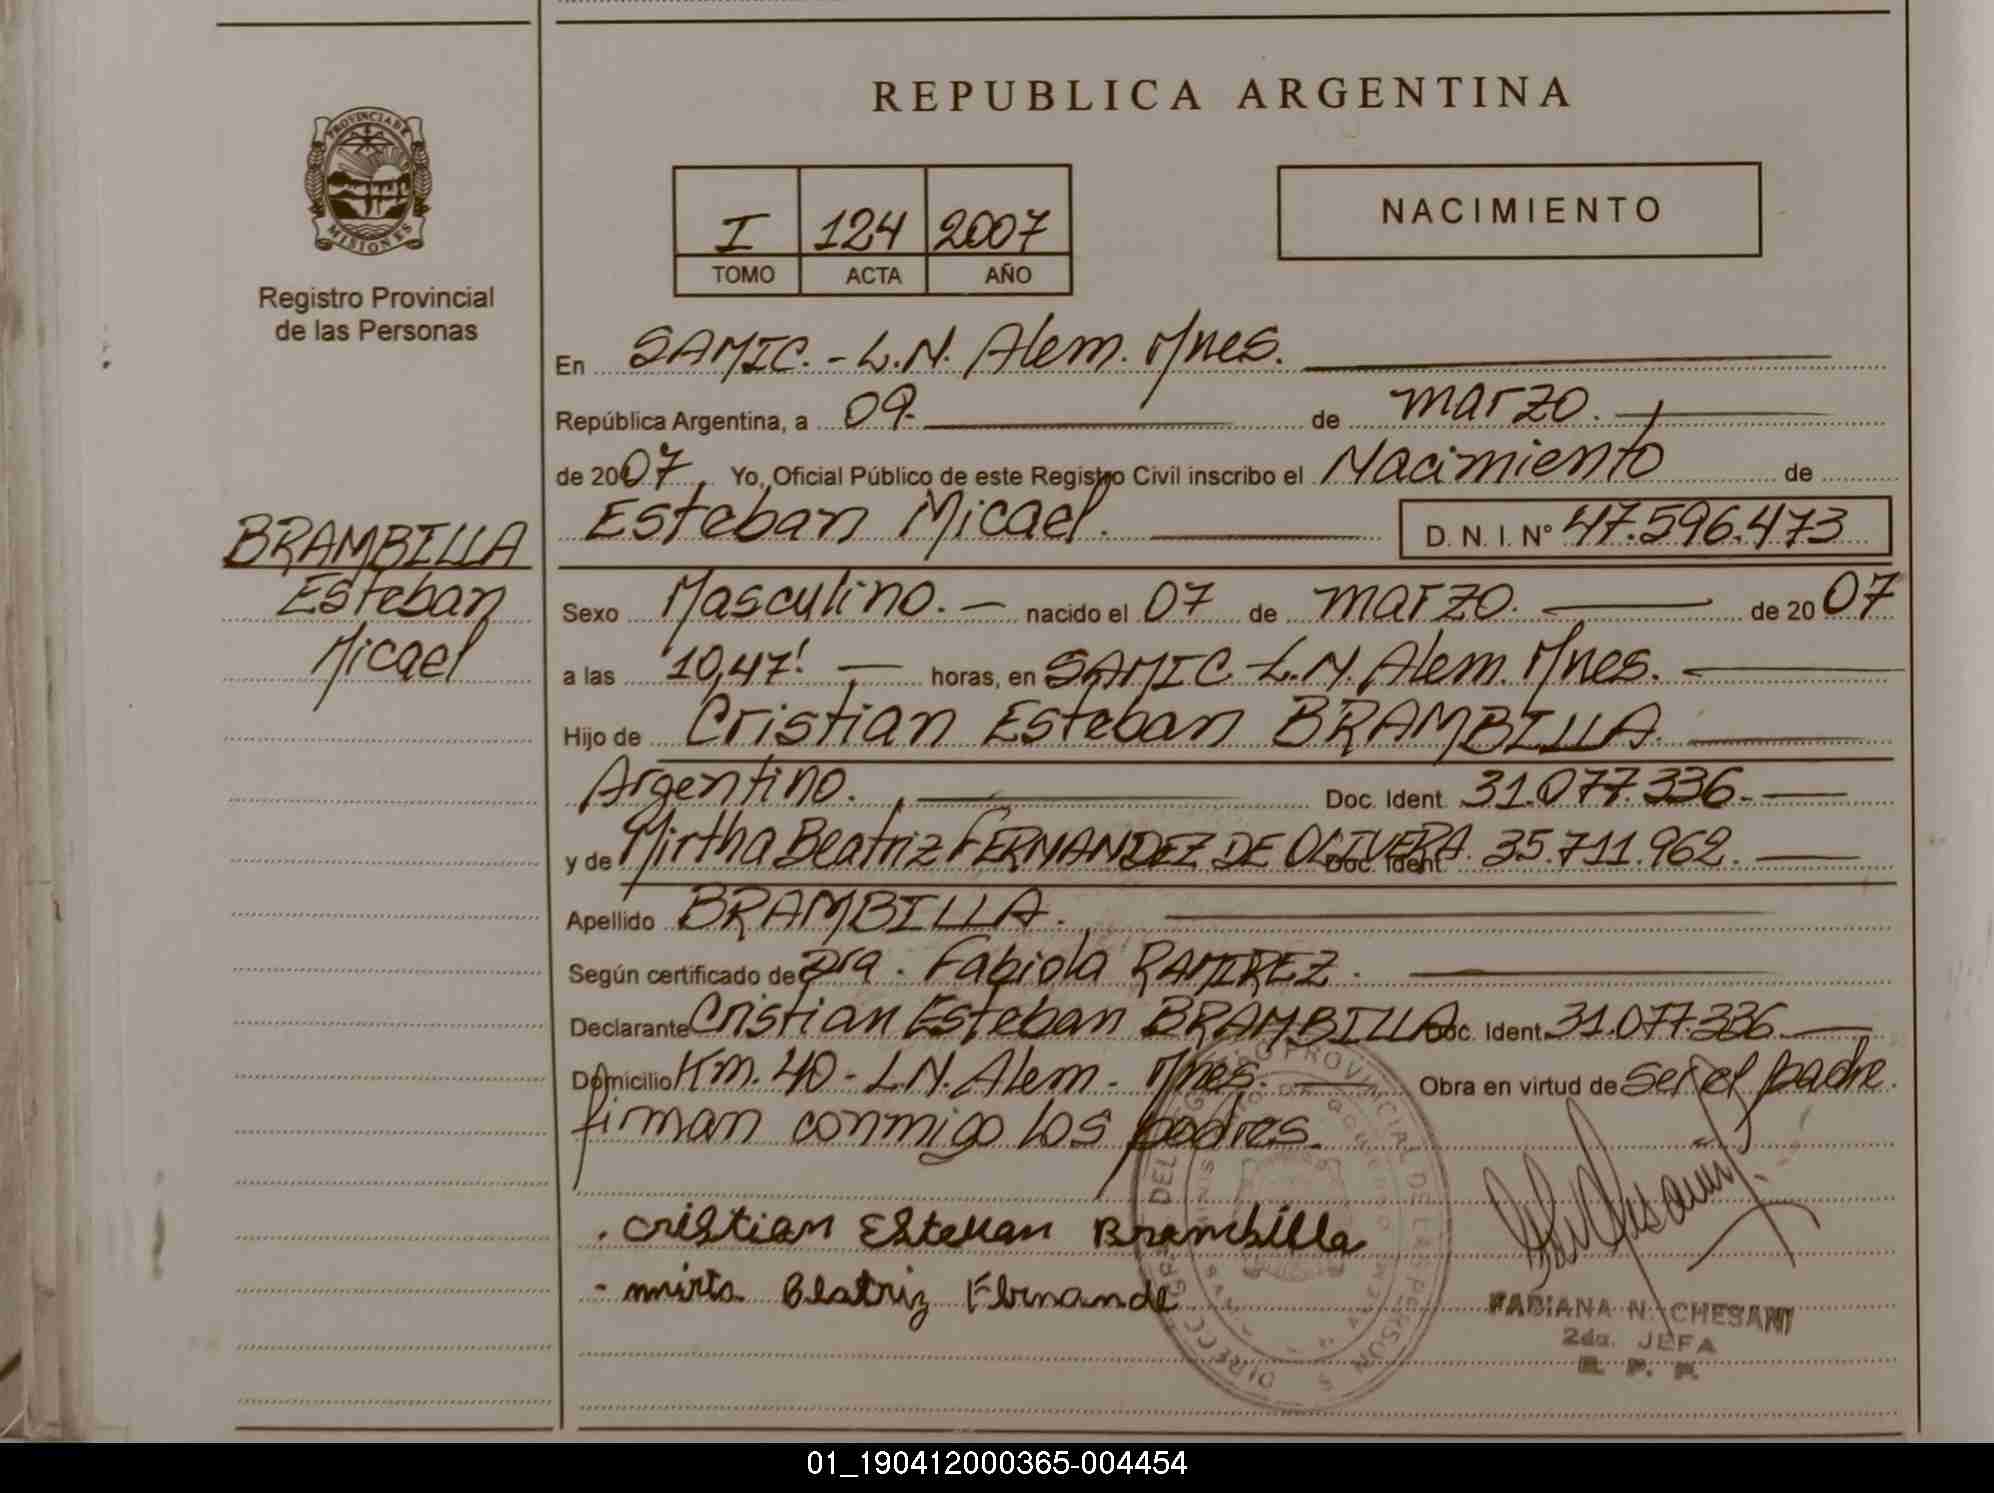 REPUBLICA ARGENTINA
PROVINCIA DE
MISIONES
Registro Provincial
de las Personas
I 124 2007
TOMO ACTA AÑO
NACIMIENTO
En SAMIC. - L.N. Alem. Mnes.
República Argentina, a 09. de marzo.
de 2007 Yo, Oficial Público de este Registro Civil inscribo el Nacimiento de
Esteban Micael. D. N. I. N° 47.596.473
BRAMBILLA
Esteban
Micael
Sexo Masculino. - nacido el 07 de marzo. de 2007
a las 10,47' - horas, en SAMIC L.N. Alem. Mnes.
Hijo de Cristian Esteban BRAMBILLA.
Argentino. Doc. Ident. 31.077.336.-
y de Mirtha Beatriz FERNANDEZ DE OLIVERA. Doc. Ident. 35.711.962.
Apellido BRAMBILLA.
Según certificado de Dra. Fabiola RAMIREZ.
Declarante Cristian Esteban BRAMBILLA Doc. Ident. 31.077.336.
Domicilio Km. 40 - L.N. Alem - Mnes. Obra en virtud de ser el padre
firman conmigo los padres.
. cristian Esteban Brambilla
- mirta Beatriz Fernande
FABIANA N. CHESANI
2da. JEFA
R. P. P.
01_190412000365-004454